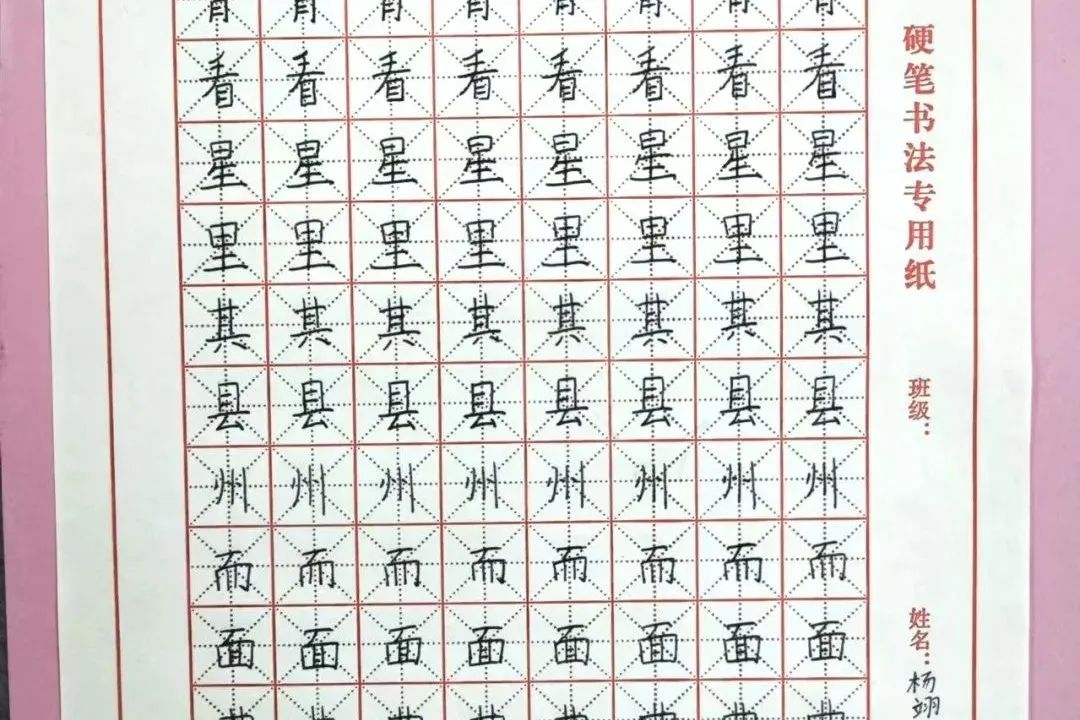 看看看看看看看看
星星星星星星星星
里里里里里里里里
其其其其其其其其
县县县县县县县县
州州州州州州州州
而而而而而而而而
面面面面面面面面
硬笔书法专用纸
班级：
姓名：杨翊